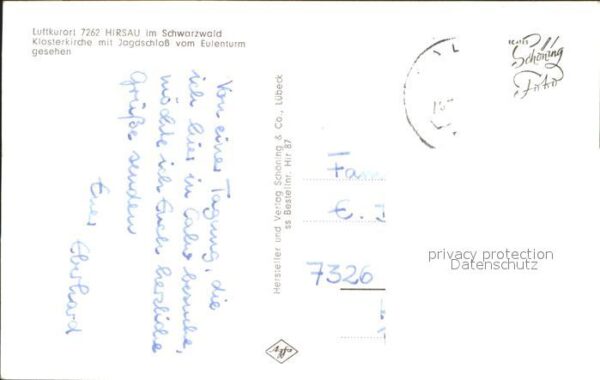 Luftkurort 7262 HIRSAU im Schwarzwald
Klosterkirche mit Jagdschloß vom Eulenturm
gesehen
Von einer Tagung, die
ich hier in Calw besuche,
möchte ich Euch herzliche
Grüße senden
Euer Eberhard
Hersteller und Verlag Schöning & Co., Lübeck
ss Bestellnr. Hir 87
echtes
Schöning
Foto
Fam
E.
7326
privacy protection
Datenschutz
Agfa